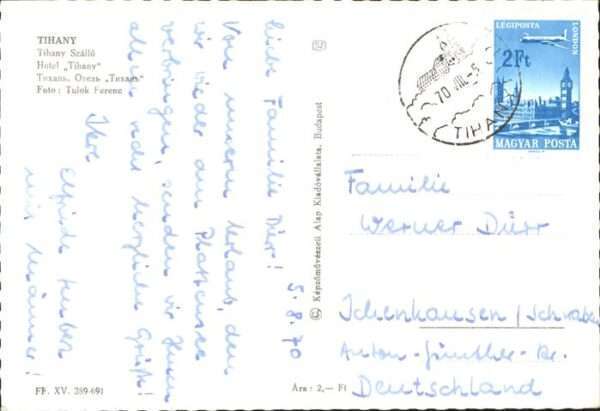 TIHANY
Tihany Szálló
Hotel „Tihany"
Тихань. Отель „Тихань"
Foto : Tulok Ferenc
5.8.70
Liebe Familie Dürr!
Von unserem Urlaub, den
wir wieder am Plattensee
verbringen, senden wir Ihnen
allen recht herzliche Grüße!
Ihre
Elfriede
mit Männer!
FF. XV. 289/691
Képzőművészeti Alap Kiadóvállalata, Budapest
Ára : 2,— Ft
LÉGIPOSTA
LONDON
2Ft
MAGYAR POSTA
70 VIII.-5
TIHANY
Familie
Werner Dürr
Ichenhausen/Schwaben
Anton-Günther-
Deutschland